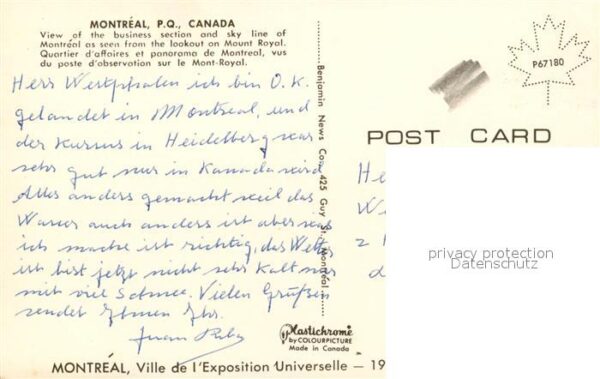 MONTRÉAL, P.Q., CANADA
View of the business section and sky line of
Montréal as seen from the lookout on Mount Royal.
Quartier d'affaires et panorama de Montreal, vus
du poste d'observation sur le Mont-Royal.
Herr Westphalen ich bin O.K.
gelandet in Montreal, und
der Kursus in Heidelberg war
sehr gut nur in Kanada wird
Alles anders gemacht weil das
auch anders ist aber was
ich mache ist richtig, das
ist bist jetzt nicht sehr kalt nur
mit viel Schnee. Vielen Grüßen
sendet Ihnen Ihr.
Juan
Benjamin News Com 425 Guy St. Montréal
P67180
POST CARD
He
We
z
d
privacy protection
Datenschutz
Plastichrome
by COLOURPICTURE
Made in Canada
MONTRÉAL, Ville de l'Exposition Universelle — 19